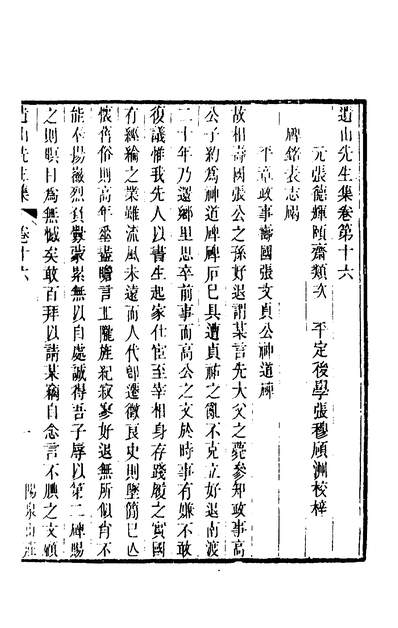 遺山先生集卷第十六
元張德輝頤齋類次　平定後學張穆碩洲校梓
碑銘表志碣
平章政事壽國張文貞公神道碑
故相壽國張公之孫好退謂某言先大父之薨參知政事高
公子約爲神道碑碑石已具遭貞祐之亂不克立好退南渡
二十年乃還鄉里思卒前事而高公之文於時事有嫌不敢
復議惟我先人以書生起家仕宦至宰相身存踐履之實國
有經綸之業雖流風未遠而人代卽遷微良史則墜簡已亾
懷舊俗則高年盡盡瞻言丘隴旌紀寂寥好退無所似肖不
能奉揚徽烈負釁蒙累無以自處誠得吾子辱以第二碑賜
之則瞑目爲無憾矣敢百拜以請某竊自念言不腆之文顧
遺山先生集
卷十六
一
陽泉山莊